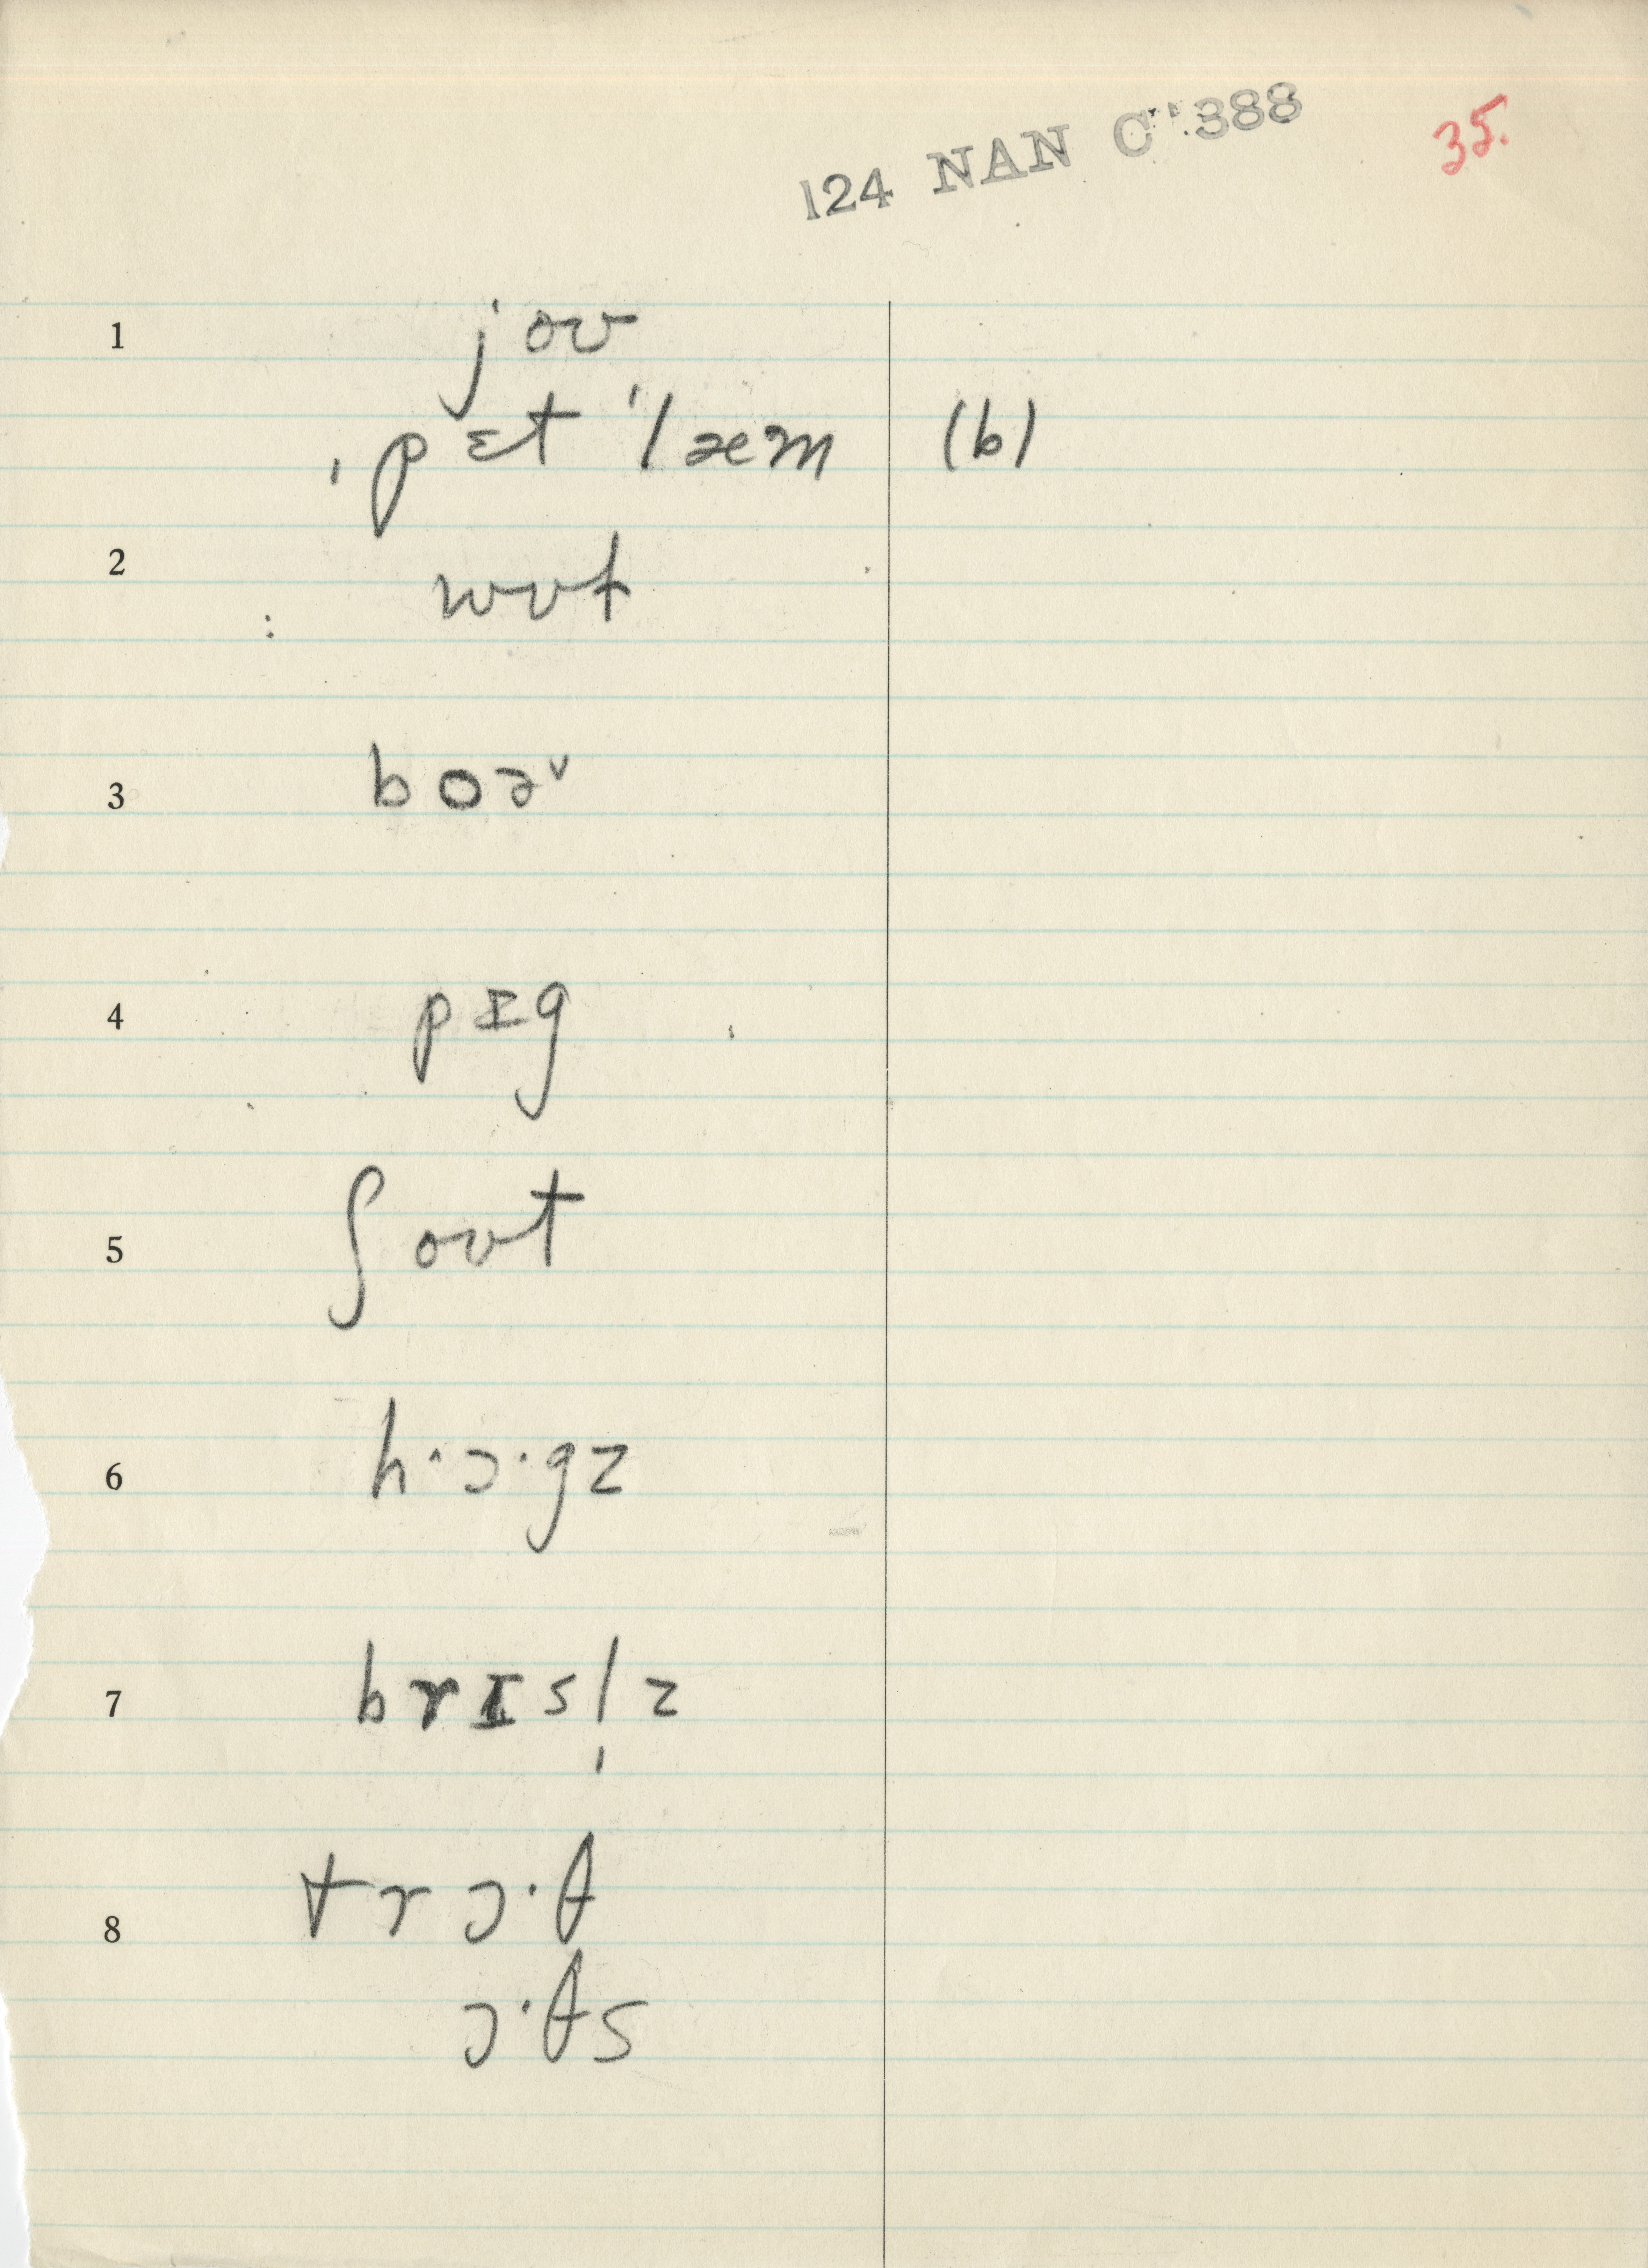 124 NAN C 388
35.
1 joʊ
ˌpɛt ˈlæm (b)
2 wʊt
3 boəᵛ
4 pɪg
5 ʃoʊt
6 h·ɔ·gz
7 brɪsl̩z
8 trɔ·θ
ɔ·θs